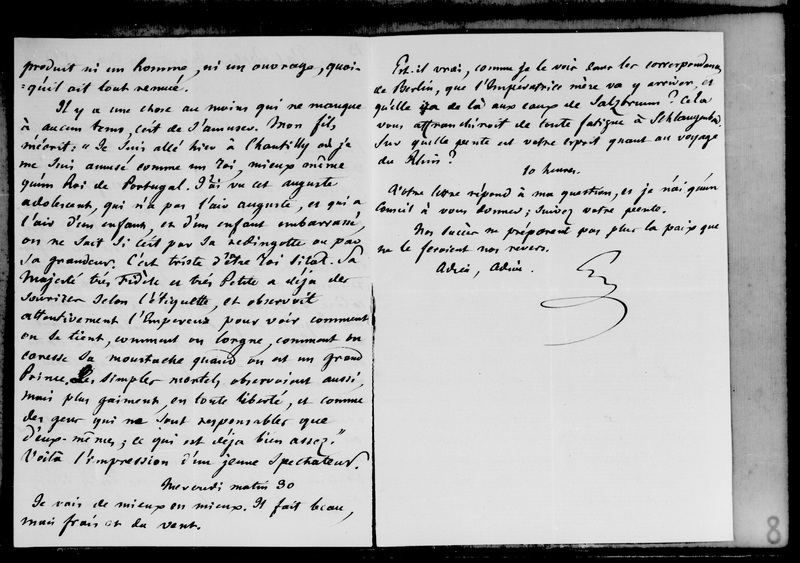 produit ni un homme, ni un ouvrage, quoi-
=qu'il ait tout remué.
Il y a une chose au moins qui ne manque
à aucun tems, c'est de s'amuser. Mon fils
m'écrit: « Je suis allé hier à Chantilly où je
me suis amusé comme un roi, mieux même
qu'un Roi de Portugal. J'ai vu cet auguste
adolescent, qui n'a pas l'air auguste, et qui a
l'air d'un enfant, et d'un enfant embarrassé,
on ne sait si c'est par sa redingotte ou par
sa grandeur. C'est triste d'être roi sitot. Sa
Majesté très Fidèle et très Petite a déja des
sourires selon l'étiquette, et observoit
attentivement l'Empereur pour voir comment
on se tient, comment on lorgne, comment on
caresse sa moustache quand on est un grand
Prince. Les simples mortels observoient aussi,
mais plus gaiment, en toute liberté, et comme
des gens qui ne sont responsables que
d'eux-mêmes; ce qui est déja bien assez."
Voilà l'impression d'un jeune spectateur.
Mercredi matin 30
Je vais de mieux en mieux. Il fait beau,
mais frais et du vent.
Est-il vrai, comme je le vois dans les correspondances
de Berlin, que l'Impératrice mère va y arriver, et
qu'elle ira de là aux eaux de Salzbrunn? Cela
vous affranchiroit de toute fatigue à Schlangenbad.
Sur quelle pente est votre esprit quant au voyage
du Rhin?
10 heures.
Votre lettre répond à ma question, et je n'ai qu'un
conseil à vous donner; suivez votre pente.
Nos succès ne préparent pas plus la paix que
ne le feroient nos revers.
Adieu, Adieu.
8